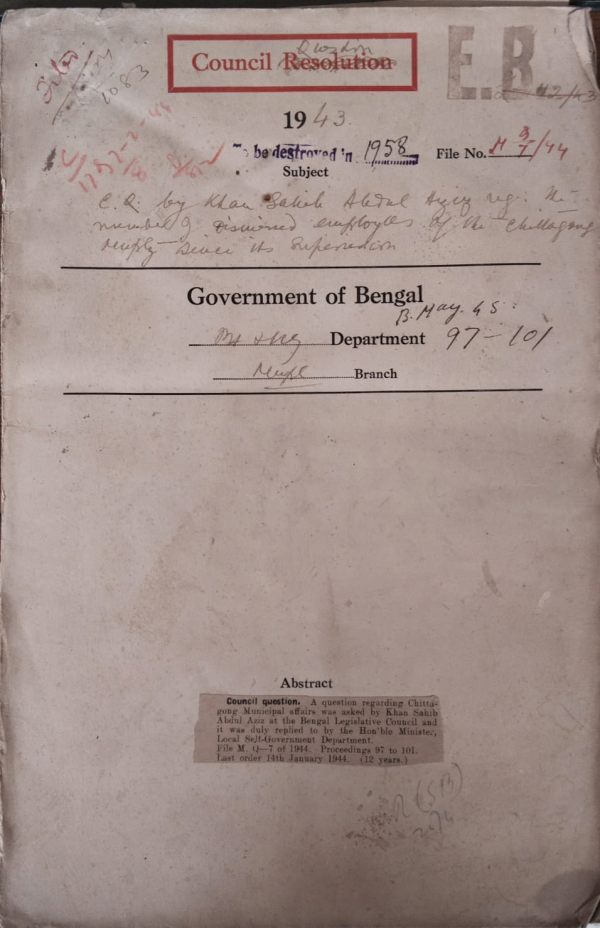 Council Resolution
Question
E.B
1943.
To be destroyed in 1958
File No. M Q/7/44
Subject
C. Q. by Khan Sahib Abdul Aziz reg. the
number of dismissed employees of the Chittagong
Municipality since its supersession
Government of Bengal
B. May. 45.
Department 97-101
Branch
Abstract
Council question. A question regarding Chitta-
gong Municipal affairs was asked by Khan Sahib
Abdul Aziz at the Bengal Legislative Council and
it was duly replied to by the Hon'ble Minister,
Local Self-Government Department.
File M. Q—7 of 1944. Proceedings 97 to 101.
Last order 14th January 1944. (12 years.)